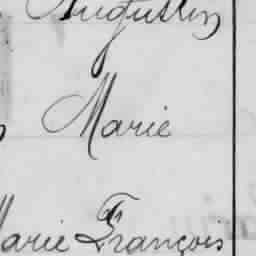 Augustin
Marie
Marie François